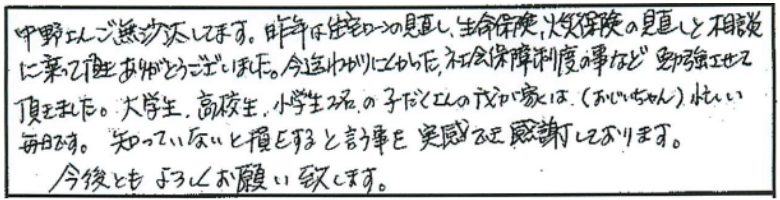 中野さんご無沙汰してます。昨年は住宅ローンの見直し、生命保険、火災保険の見直しと相談
に乗って頂きありがとうございました。今迄わかりにくかった、社会保障制度の事など勉強させて
頂きました。大学生、高校生、小学生2名の子だくさんの我が家は、(おじいちゃん)忙しい
毎日です。知っていないと損をすると言う事を実感でき感謝しております。
今後ともよろしくお願い致します。